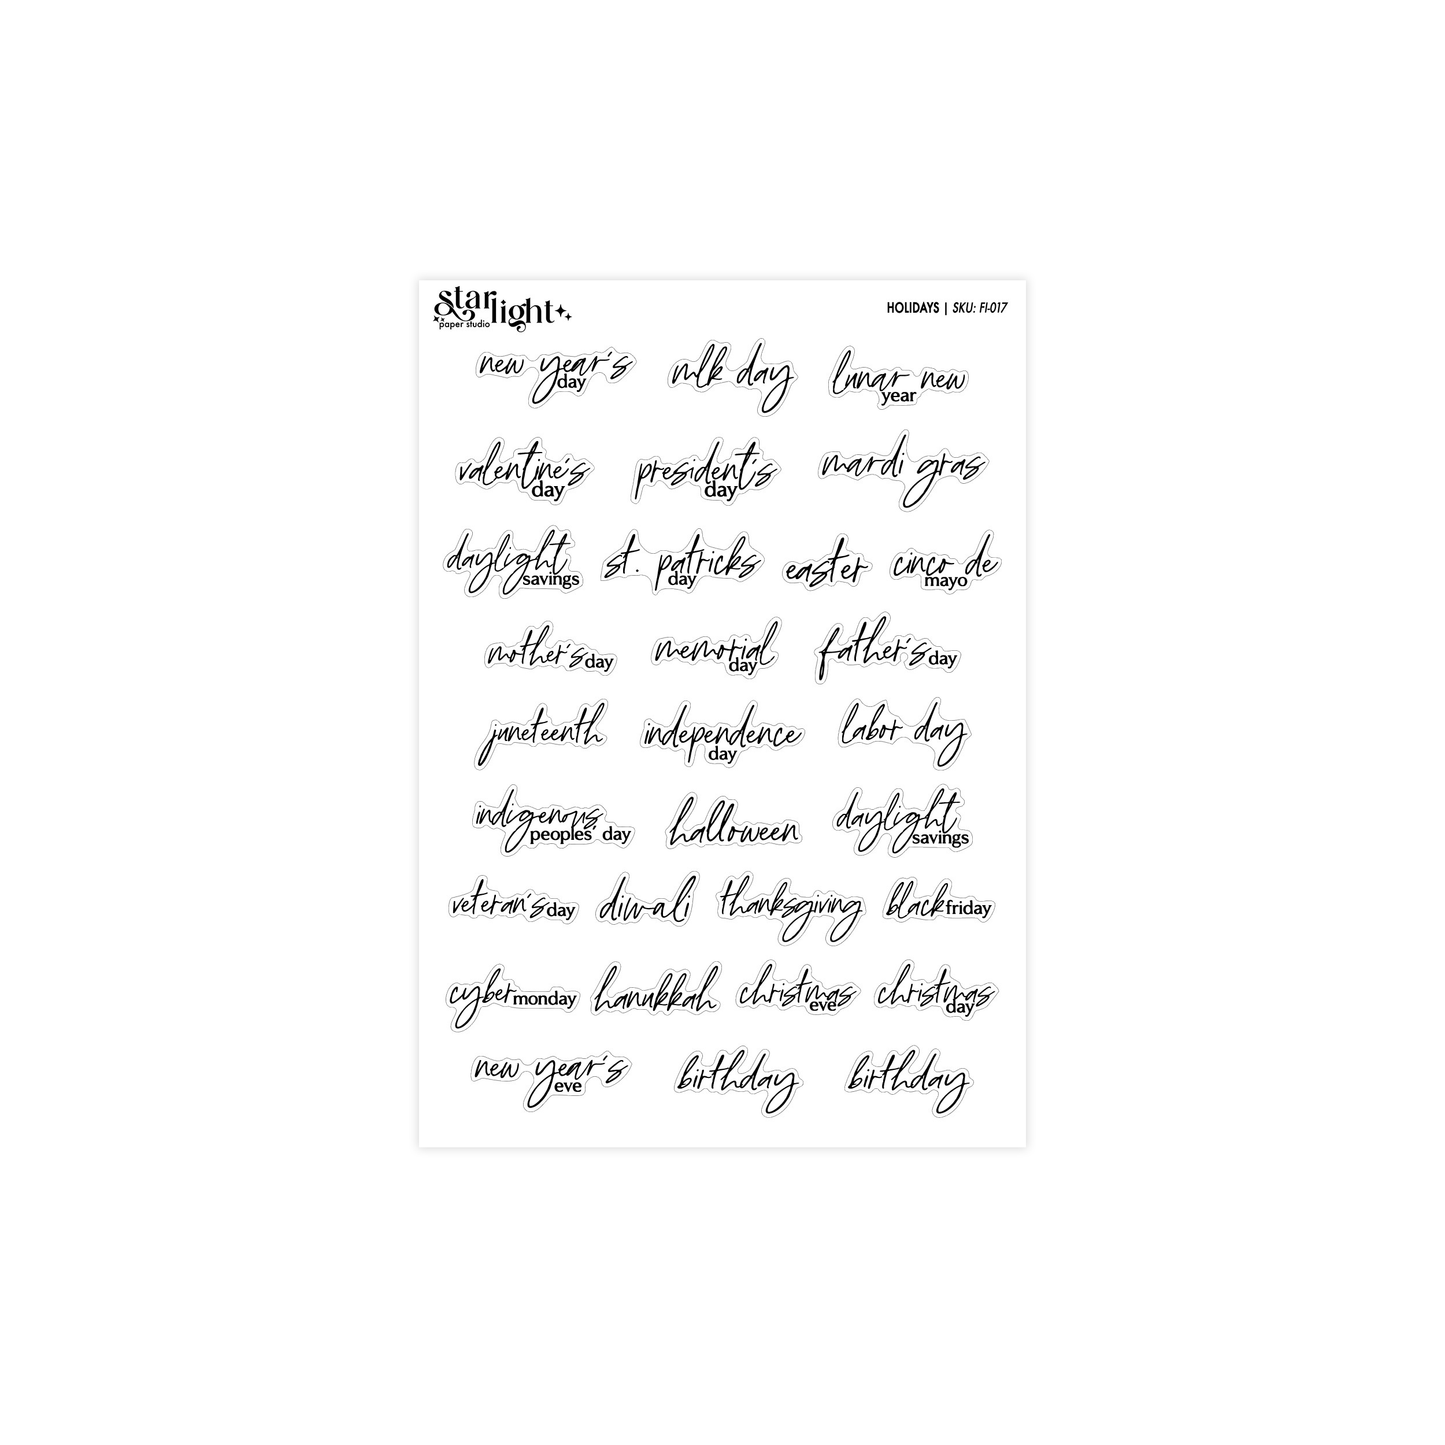 starlight
paper studio
HOLIDAYS | SKU: FI-017
new year's day
mlk day
lunar new year
valentine's day
president's day
mardi gras
daylight savings
st. patricks day
easter
cinco de mayo
mother's day
memorial day
father's day
juneteenth
independence day
labor day
indigenous peoples' day
halloween
daylight savings
veteran's day
diwali
thanksgiving
black friday
cyber monday
hanukkah
christmas eve
christmas day
new year's eve
birthday
birthday